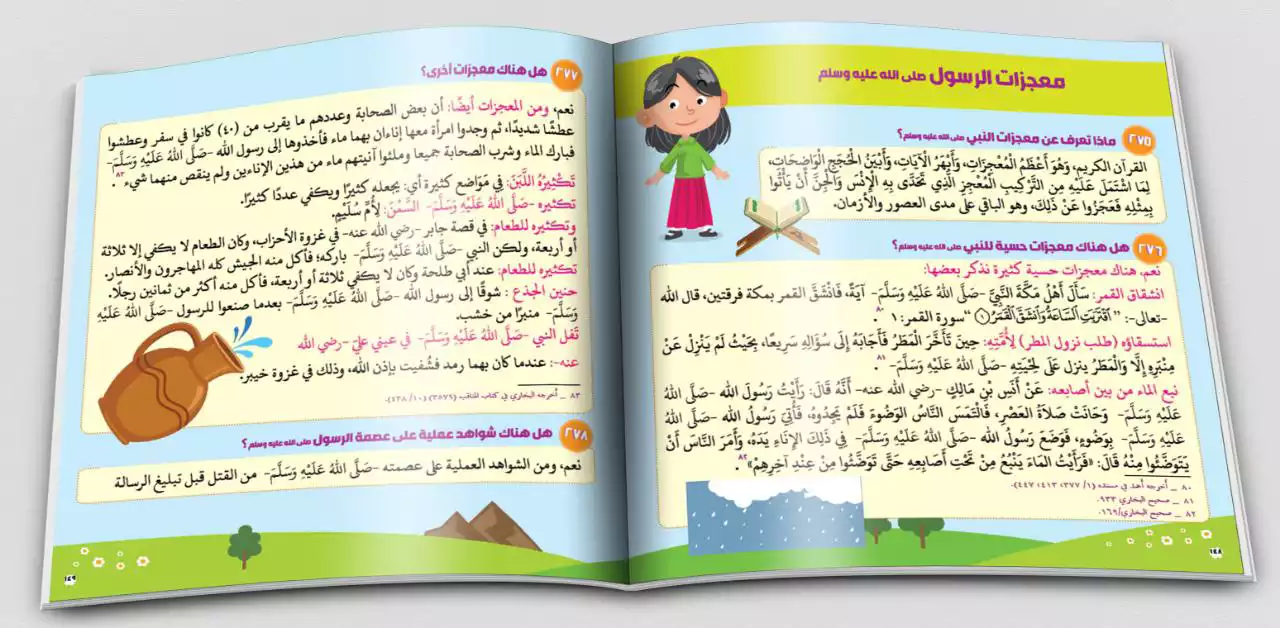 معجزات الرسول صلى الله عليه وسلم
٢٧٥ ماذا تعرف عن معجزات النبي صلى الله عليه وسلم؟
القرآن الكريم، وَهُوَ أَعْظَمُ الْمُعْجِزَاتِ، وَأَبْهَرُ الْآيَاتِ، وَأَبْيَنُ الْحُجَجِ الْوَاضِحَاتِ،
لِمَا اشْتَمَلَ عَلَيْهِ مِنَ التَّرْكِيبِ الْمُعْجِزِ الَّذِي تَحَدَّى بِهِ الْإِنْسَ وَالْجِنَّ أَنْ يَأْتُوا
بِمِثْلِهِ فَعَجَزُوا عَنْ ذَلِكَ، وهو الباقي على مدى العصور والأزمان.
٢٧٦ هل هناك معجزات حسية للنبي صلى الله عليه وسلم؟
نعم، هناك معجزات حسية كثيرة نذكر بعضها:
انشقاق القمر: سَأَلَ أَهْلُ مَكَّةَ النَّبِيَّ -صَلَّى اللهُ عَلَيْهِ وَسَلَّمَ- آيَةً، فَانْشَقَّ القمر بمكة فرقتين، قال الله
-تعالى-: "اقْتَرَبَتِ السَّاعَةُ وَانْشَقَّ الْقَمَرُ ١" سورة القمر: ١ ٨٠.
استسقاؤه (طلب نزول المطر) لِأُمَّتِهِ: حِينَ تَأَخَّرَ الْمَطَرُ فَأَجَابَهُ إِلَى سُؤَالِهِ سَرِيعًا، بِحَيْثُ لَمْ يَنْزِلْ عَنْ
مِنْبَرِهِ إِلَّا وَالْمَطَرُ ينزل عَلَى لِحْيَتِهِ -صَلَّى اللهُ عَلَيْهِ وَسَلَّمَ-. ٨١
نبع الماء من بين أصابعه: عَنْ أَنَسِ بْنِ مَالِكٍ -رضي الله عنه- أَنَّهُ قَالَ: رَأَيْتُ رَسُولَ الله -صَلَّى اللهُ
عَلَيْهِ وَسَلَّمَ- وَحَانَتْ صَلَاةُ العَصْرِ، فَالْتَمَسَ النَّاسُ الوَضُوءَ فَلَمْ يَجِدُوهُ، فَأُتِيَ رَسُولُ الله -صَلَّى اللهُ
عَلَيْهِ وَسَلَّمَ- بِوَضُوءٍ، فَوَضَعَ رَسُولُ الله -صَلَّى اللهُ عَلَيْهِ وَسَلَّمَ- فِي ذَلِكَ الإِنَاءِ يَدَهُ، وَأَمَرَ النَّاسَ أَنْ
يَتَوَضَّئُوا مِنْهُ قَالَ: «فَرَأَيْتُ المَاءَ يَنْبُعُ مِنْ تَحْتِ أَصَابِعِهِ حَتَّى تَوَضَّئُوا مِنْ عِنْدِ آخِرِهِمْ» ٨٢.
٨٠ _ أخرجه أحمد في مسنده (١/ ٣٧٧، ٤١٣، ٤٤٧).
٨١ _ صحيح البخاري ٩٣٣.
٨٢ _ صحيح البخاري/١٦٩.
١٤٨
٢٧٧ هل هناك معجزات أخرى؟
نعم، ومن المعجزات أيضًا: أن بعض الصحابة وعددهم ما يقرب من (٤٠) كانوا في سفر وعطشوا
عطشًا شديدًا، ثم وجدوا امرأة معها إناءان بهما ماء فأخذوها إلى رسول الله -صَلَّى اللهُ عَلَيْهِ وَسَلَّمَ-
فبارك الماء وشرب الصحابة جميعا وملئوا آنيتهم ماء من هذين الإناءين ولم ينقص منهما شيء ٨٣.
تَكْثِيرُهُ اللَّبَنَ: فِي مَوَاضع كثيرة أي: يجعله كثيرًا ويكفي عددًا كثيرًا.
تكثيره -صَلَّى اللهُ عَلَيْهِ وَسَلَّمَ- السَّمْنَ: لِأُمِّ سُلَيْمٍ.
وتكثيره للطعام: في قصة جابر -رضي الله عنه- في غزوة الأحزاب، وكان الطعام لا يكفي إلا ثلاثة
أو أربعة، ولكن النبي -صَلَّى اللهُ عَلَيْهِ وَسَلَّمَ- باركه؛ فأكل منه الجيش كله المهاجرون والأنصار.
تكثيره للطعام: عند أبي طلحة وكان لا يكفي ثلاثة أو أربعة، فأكل منه أكثر من ثمانين رجلًا.
حنين الجذع : شوقًا إلى رسول الله -صَلَّى اللهُ عَلَيْهِ وَسَلَّمَ- بعدما صنعوا للرسول -صَلَّى اللهُ عَلَيْهِ
وَسَلَّمَ- منبرًا من خشب.
تَفل النبي -صَلَّى اللهُ عَلَيْهِ وَسَلَّمَ- في عيني علي -رضي الله
عنه-: عندما كان بهما رمد فشُفيت بإذن الله، وذلك في غزوة خيبر.
٨٣ _ أخرجه البخاري في كتاب المناقب (٣٥٧٩) (١٠/ ٤٣٨).
٢٧٨ هل هناك شواهد عملية على عصمة الرسول صلى الله عليه وسلم؟
نعم، ومن الشواهد العملية على عصمته -صَلَّى اللهُ عَلَيْهِ وَسَلَّمَ- من القتل قبل تبليغ الرسالة
١٤٩